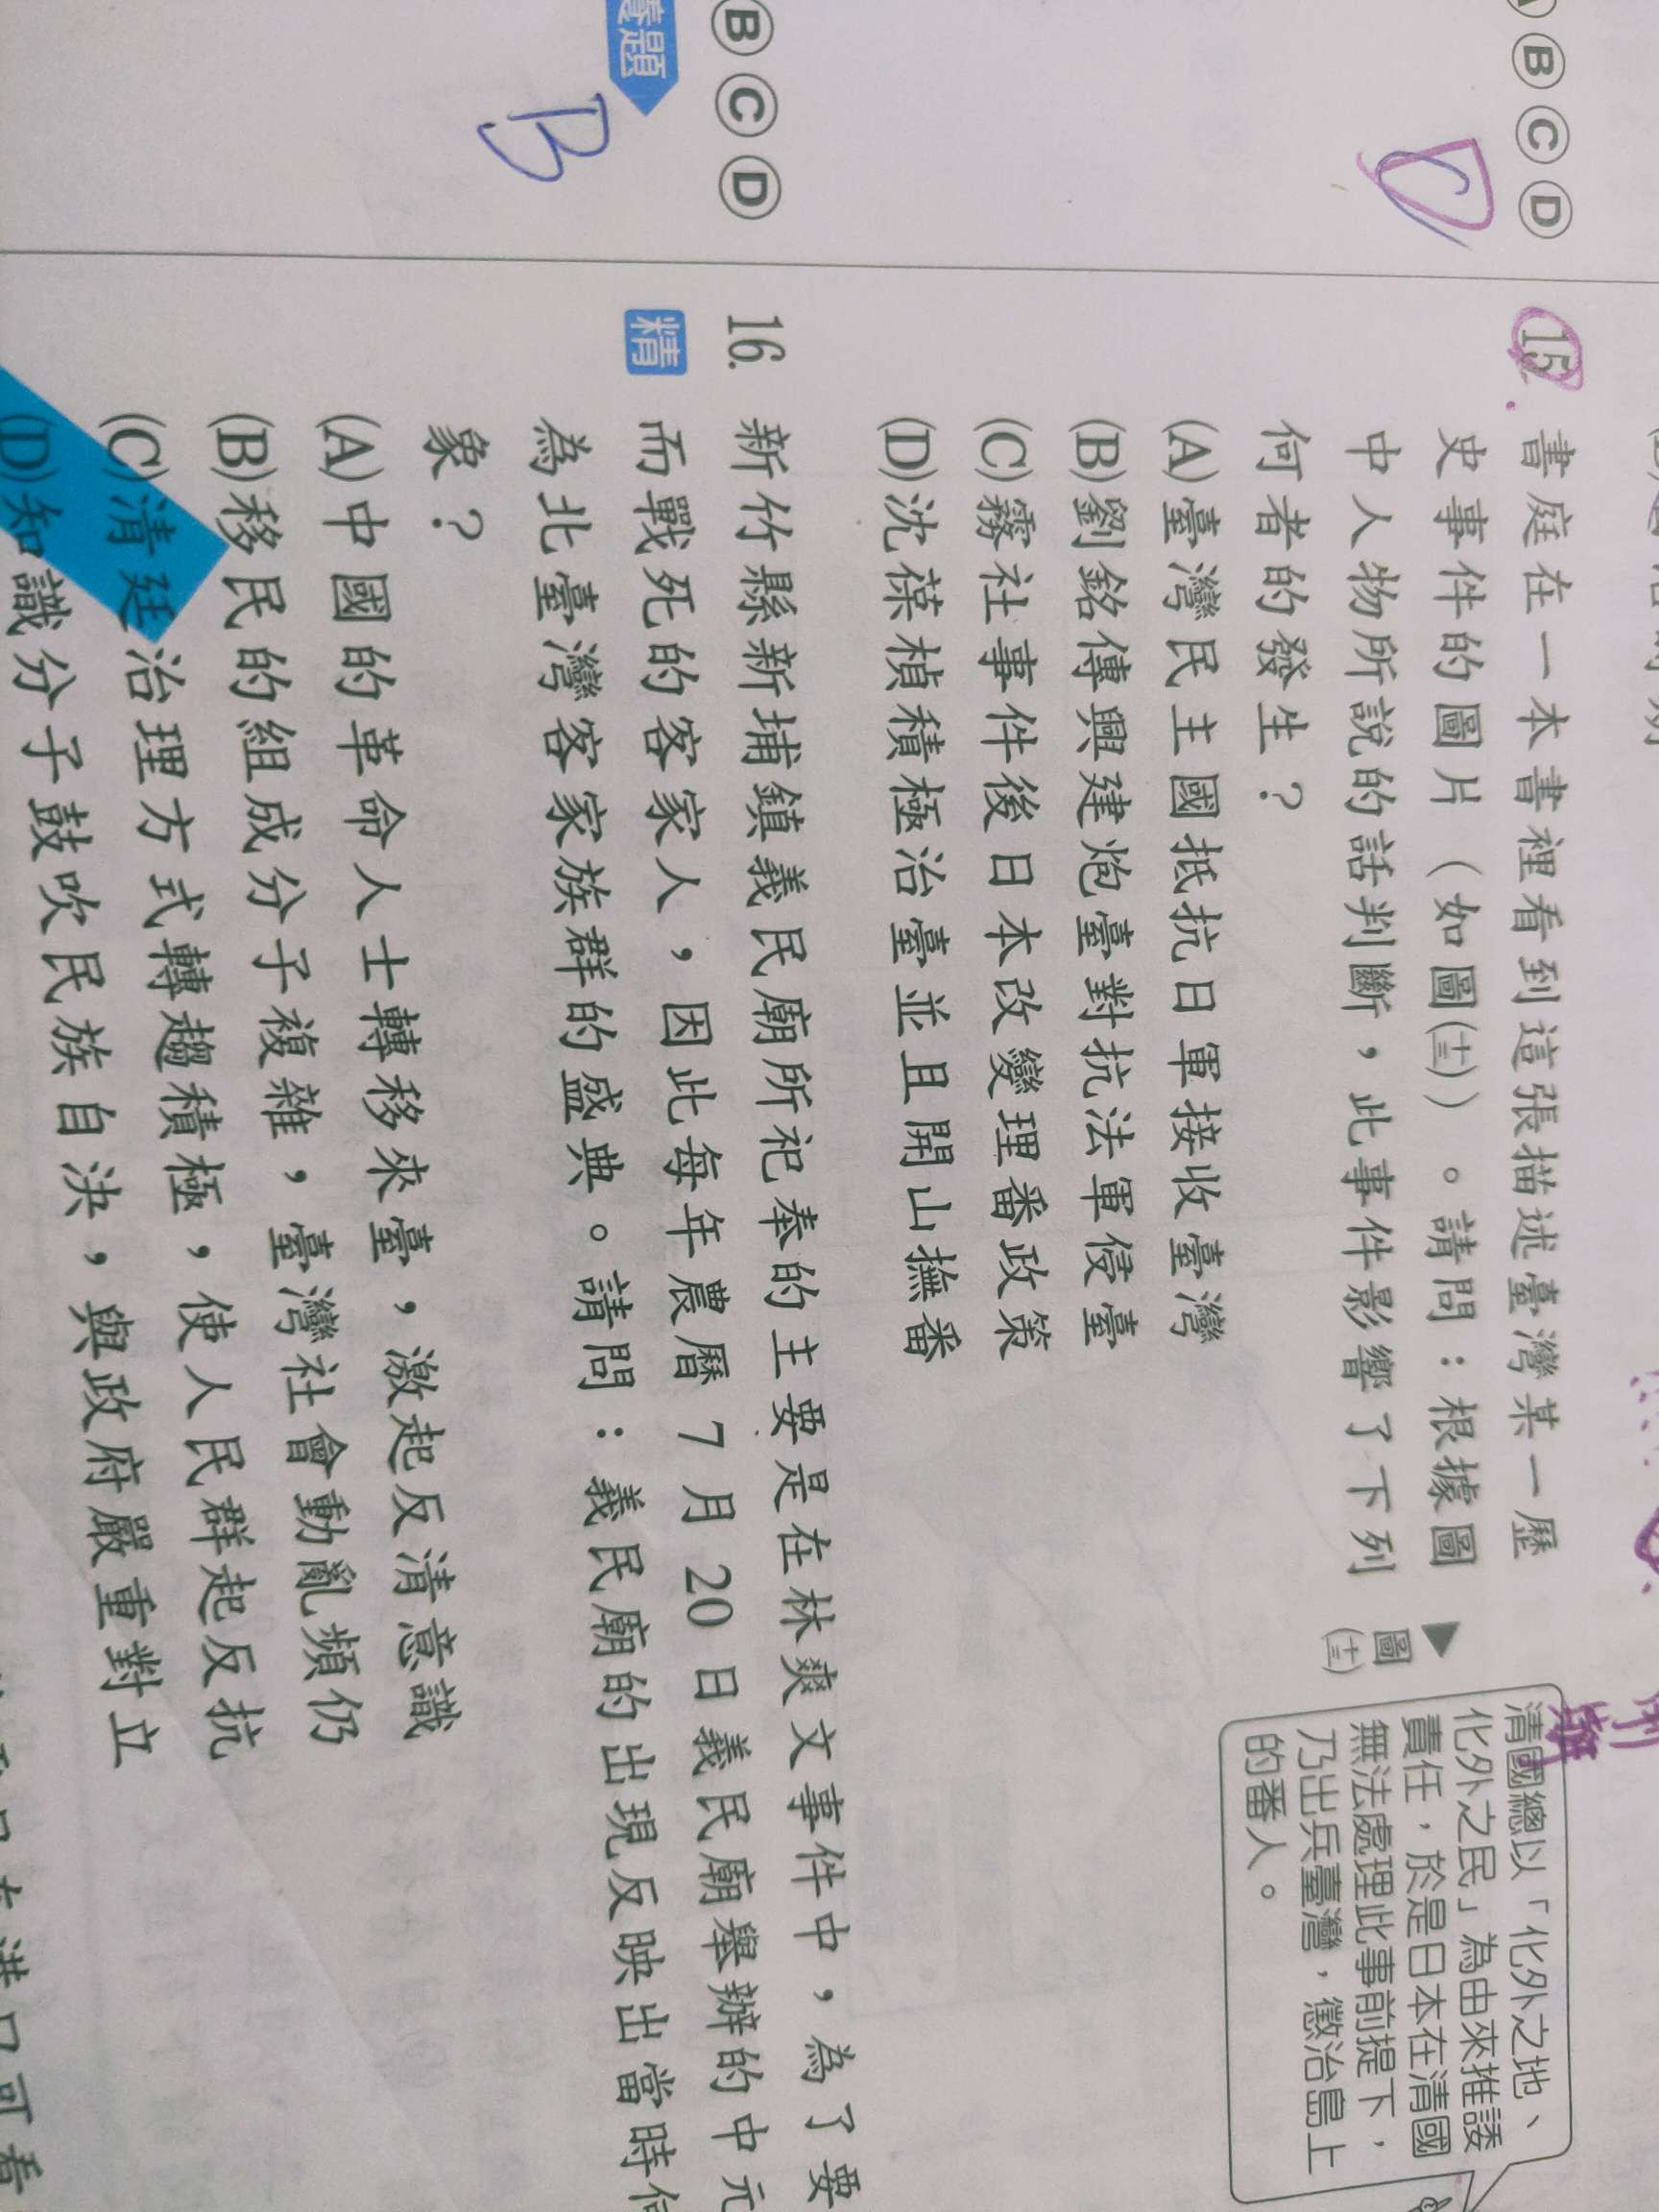 B C D
15. 書庭在一本書裡看到這張描述臺灣某一歷
史事件的圖片（如圖(十三)）。請問：根據圖
中人物所說的話判斷，此事件影響了下列
何者的發生？
(A)臺灣民主國抵抗日軍接收臺灣
(B)劉銘傳興建炮臺對抗法軍侵臺
(C)霧社事件後日本改變理番政策
(D)沈葆楨積極治臺並且開山撫番
▶圖(十三)
清國總以「化外之地、
化外之民」為由來推諉
責任，於是日本在清國
無法處理此事前提下，
乃出兵臺灣，懲治島上
的番人。
B C D
題
B
16. 新竹縣新埔鎮義民廟所祀奉的主要是在林爽文事件中，為了要
精 而戰死的客家人，因此每年農曆 7 月 20 日義民廟舉辦的中元
為北臺灣客家族群的盛典。請問：義民廟的出現反映出當時
象？
(A)中國的革命人士轉移來臺，激起反清意識
(B)移民的組成分子複雜，臺灣社會動亂頻仍
(C)清廷治理方式轉趨積極，使人民群起反抗
(D)知識分子鼓吹民族自決，與政府嚴重對立